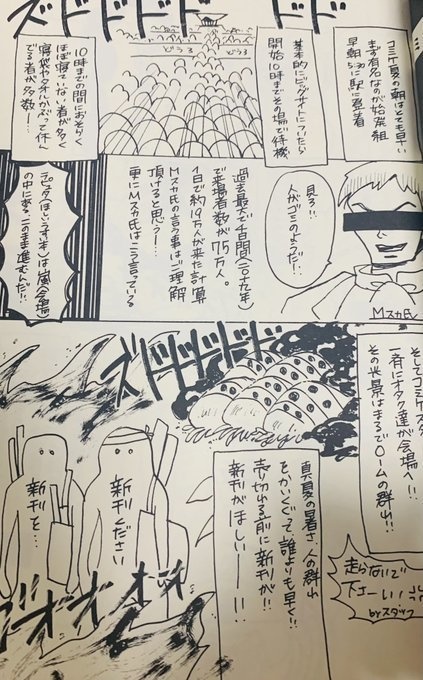 ズドドドドドド
コミケ夏の朝はとても早い
まず有名なのが始発組
早朝5:30に駅に到着
基本的にビッグサイトについたら
開始10時までその場で待機
どうろ
どうろ
10時までの間におそらく
ほぼ寝ていない者が多く
寝袋やタオルかぶって休ん
でる者が多数ー
見ろ!!
人がゴミのようだ!!
Mスカ氏
過去最大で4日間(二〇十九年)
で来場者数が75万人。
1日で約19万人が来た計算
Mスカ氏の言う事はご理解
頂けると思う!…
更にMスカ氏はこう言っている
は嵐(会場)
の中にある、このまま進むんだ!!
そしてコミケスタ
一斉にオタク達が会場へ!!
その光景はまるで〇ームの群れ!!
走らないで
下さーい!!
byスタッフ
ズドドドドド
真夏の暑さ、人の群れ
をかいくぐって誰よりも早く!!
売り切れる前に新刊が!!
新刊がほしいーー!!
新刊ください
新刊を…
オオオオオオ